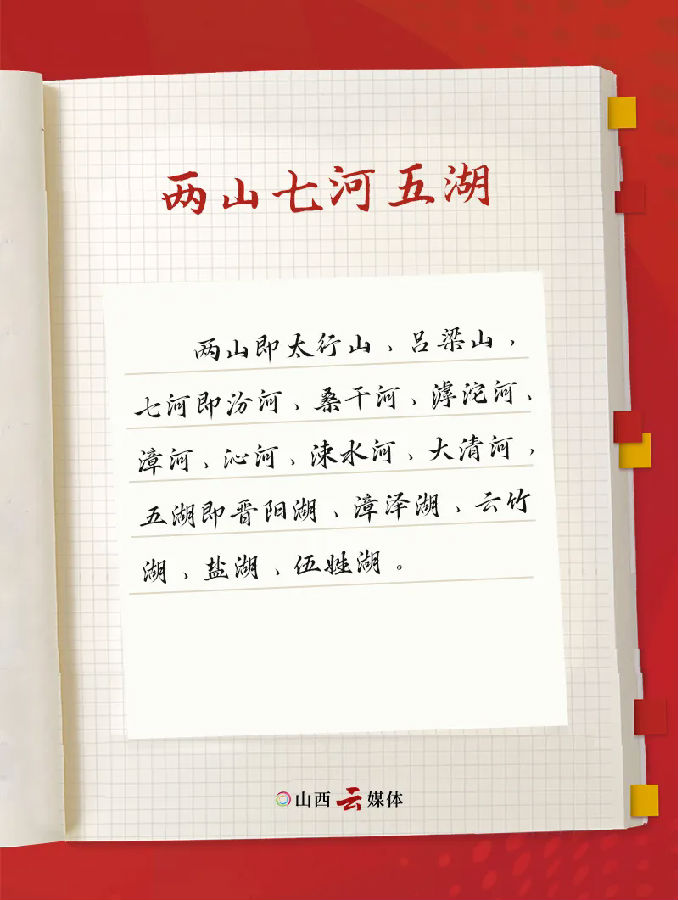 两山七河五湖
两山即太行山、吕梁山，
七河即汾河、桑干河、滹沱河、
漳河、沁河、涑水河、大清河，
五湖即晋阳湖、漳泽湖、云竹
湖、盐湖、伍姓湖。
山西云媒体